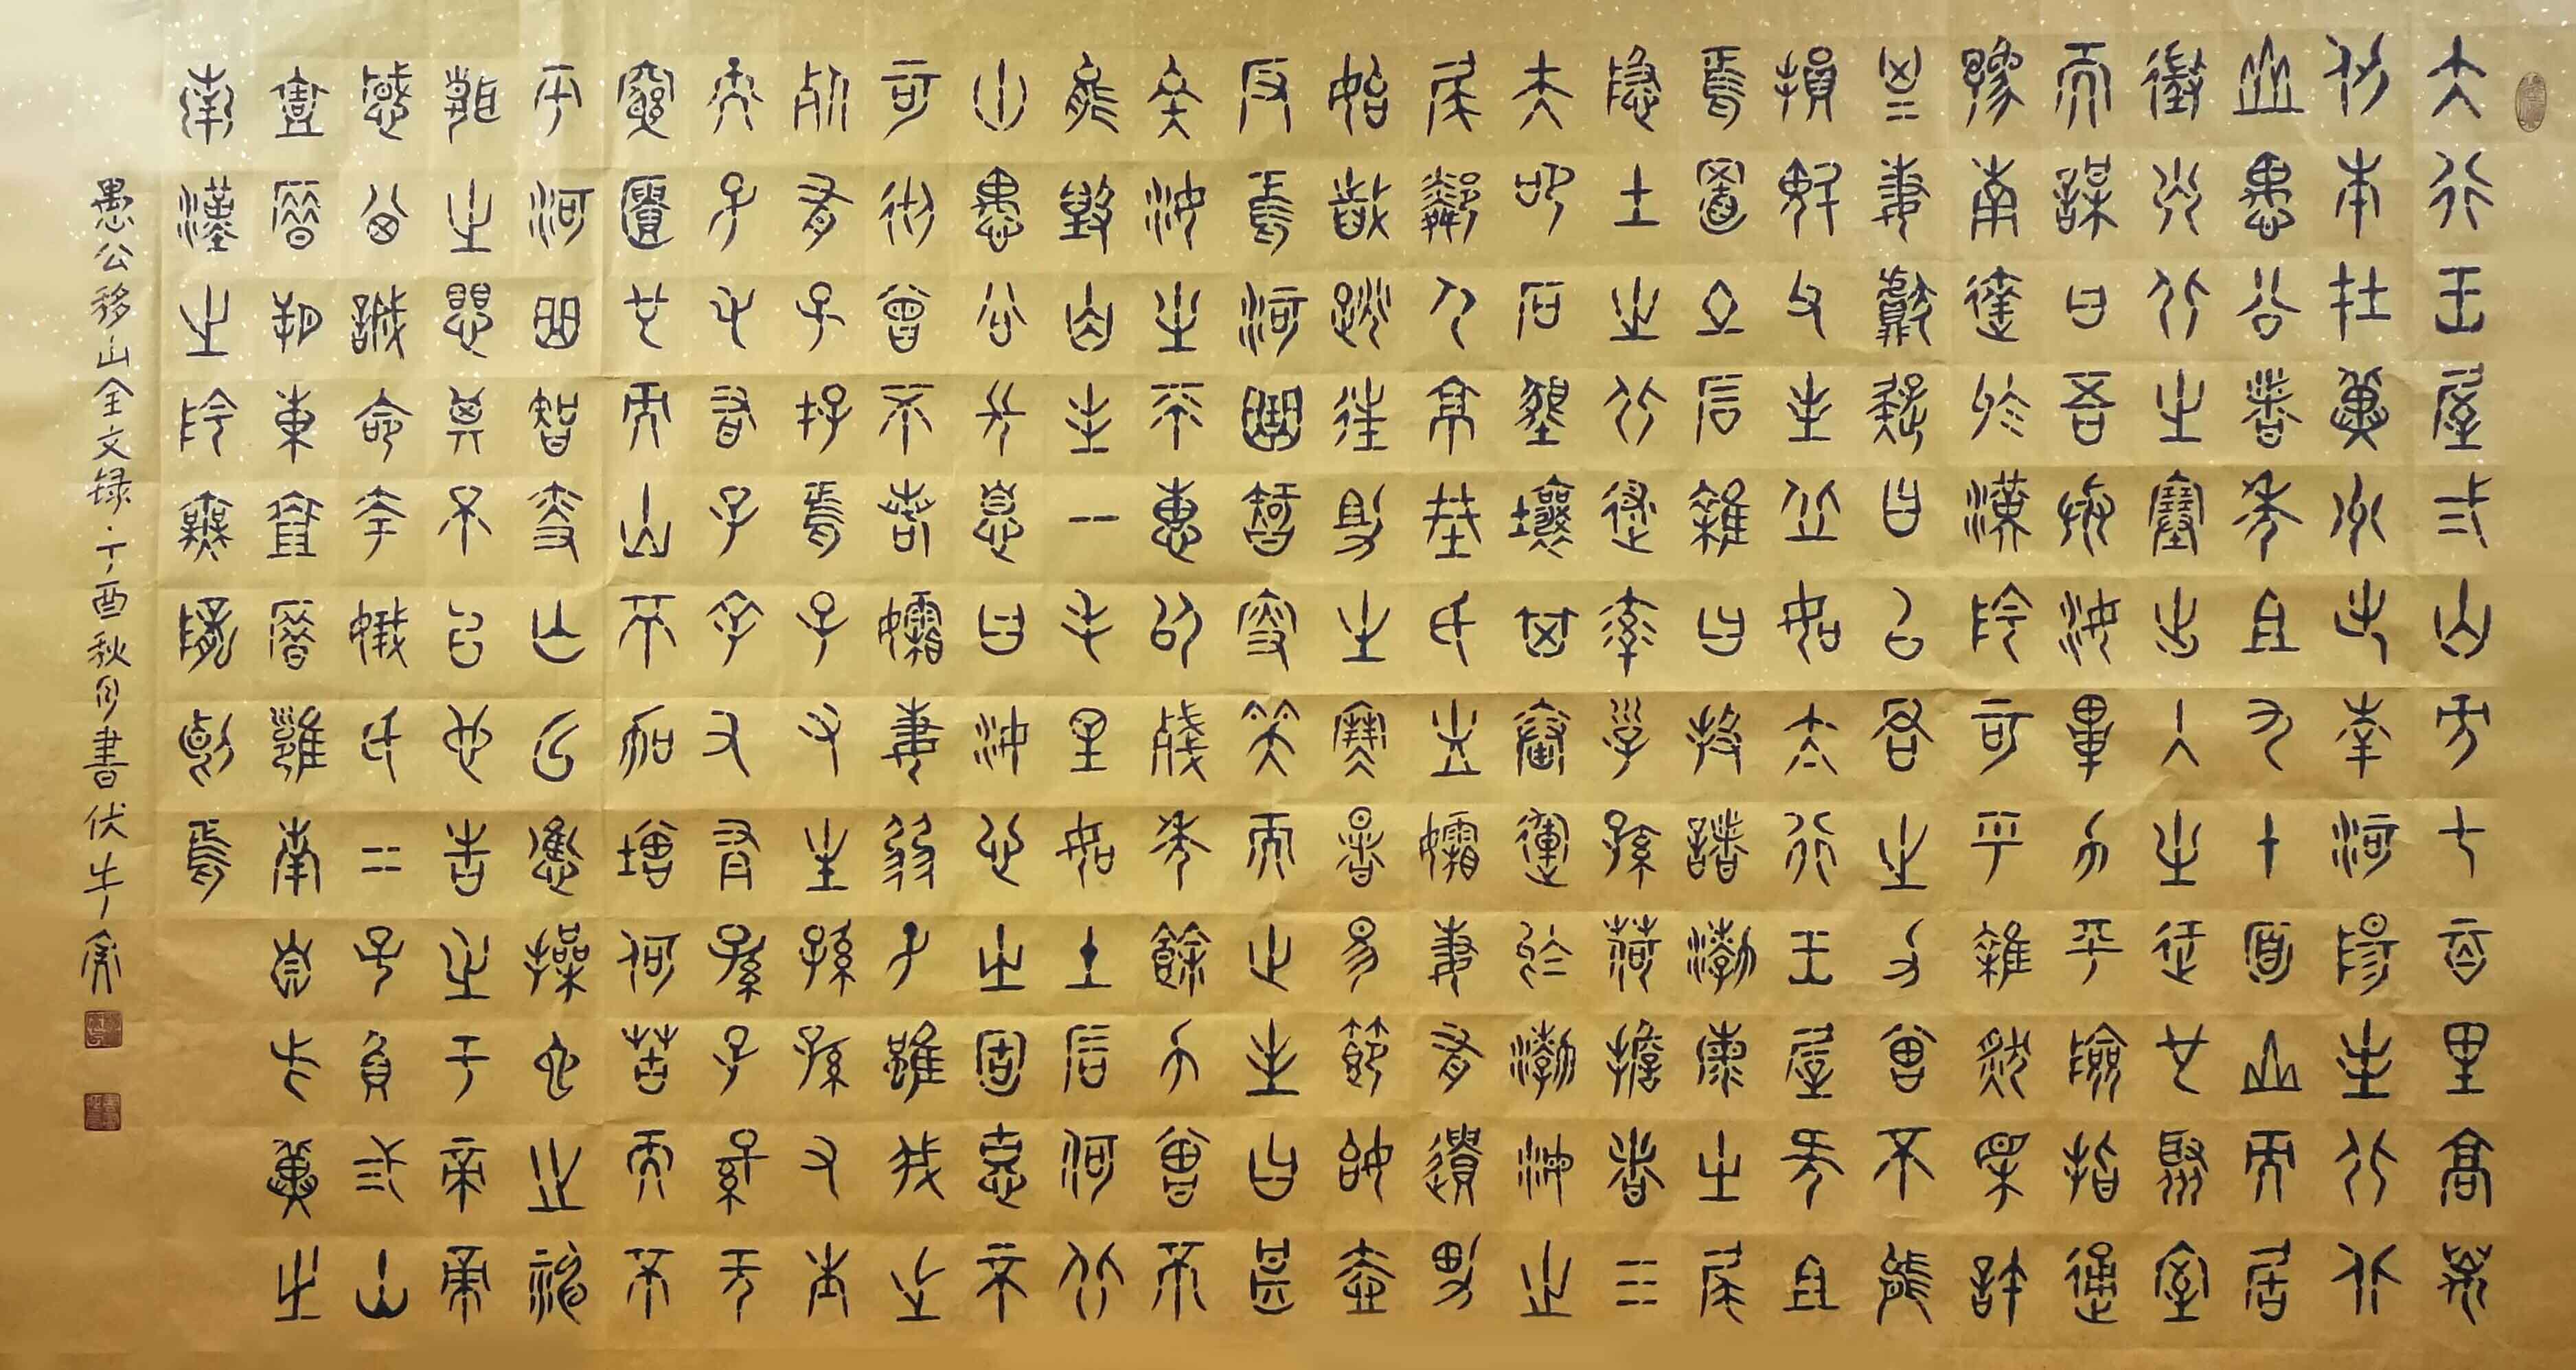 太行王屋二山方七百里高萬
仞本在冀州之南河陽之北北
山愚公者年且九十面山而居
懲山北之塞出入之迂也聚室
而謀曰吾與汝畢力平險指通
豫南達於漢陰可乎雜然相許
其妻獻疑曰以君之力曾不能
損魁父之丘如太行王屋何且
焉置土石雜曰投諸渤海之尾
隱土之北遂率子孫荷擔者三
夫叩石墾壤箕畚運於渤海之
尾鄰人京城氏之孀妻有遺男
始齔跳往助之寒暑易節始一
反焉河曲智叟笑而止之曰甚
矣汝之不惠以殘年餘力曾不
能毀山之一毛其如土石何北
山愚公長息曰汝心之固固不
可徹曾不若孀妻弱子雖我之
死有子存焉子又生孫孫又生
子子又有子子又有孫子子孫孫无
窮匱也而山不加增何苦而不
平河曲智叟亡以應操蛇之神
聞之懼其不已也告之于帝帝
感其誠命夸娥氏二子負二山
壹厝朔東壹厝雍南自此冀之
南漢之陰無隴斷焉
愚公移山全文録·丁酉秋月書伏牛